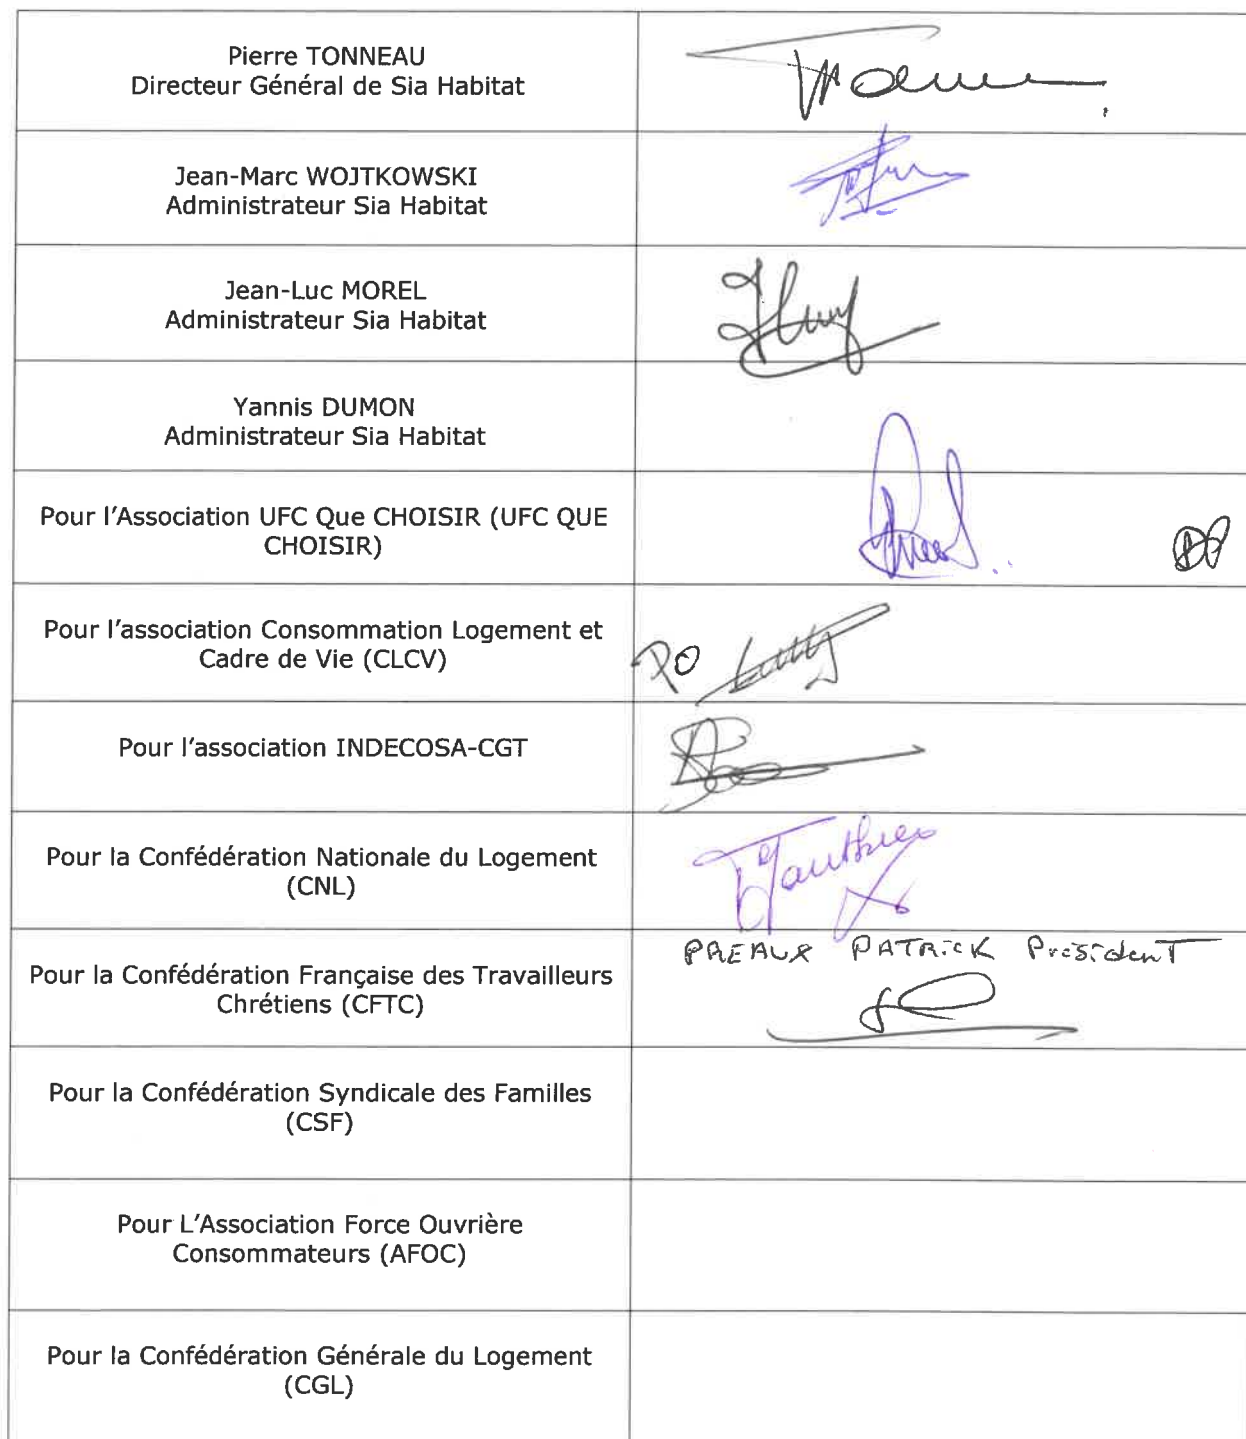 Pierre TONNEAU
Directeur Général de Sia Habitat
Jean-Marc WOJTKOWSKI
Administrateur Sia Habitat
Jean-Luc MOREL
Administrateur Sia Habitat
Yannis DUMON
Administrateur Sia Habitat
Pour l'Association UFC Que CHOISIR (UFC QUE
CHOISIR)
Pour l'association Consommation Logement et
Cadre de Vie (CLCV)
PO
Pour l'association INDECOSA-CGT
Pour la Confédération Nationale du Logement
(CNL)
PREAUX PATRICK President
Pour la Confédération Française des Travailleurs
Chrétiens (CFTC)
Pour la Confédération Syndicale des Familles
(CSF)
Pour L'Association Force Ouvrière
Consommateurs (AFOC)
Pour la Confédération Générale du Logement
(CGL)